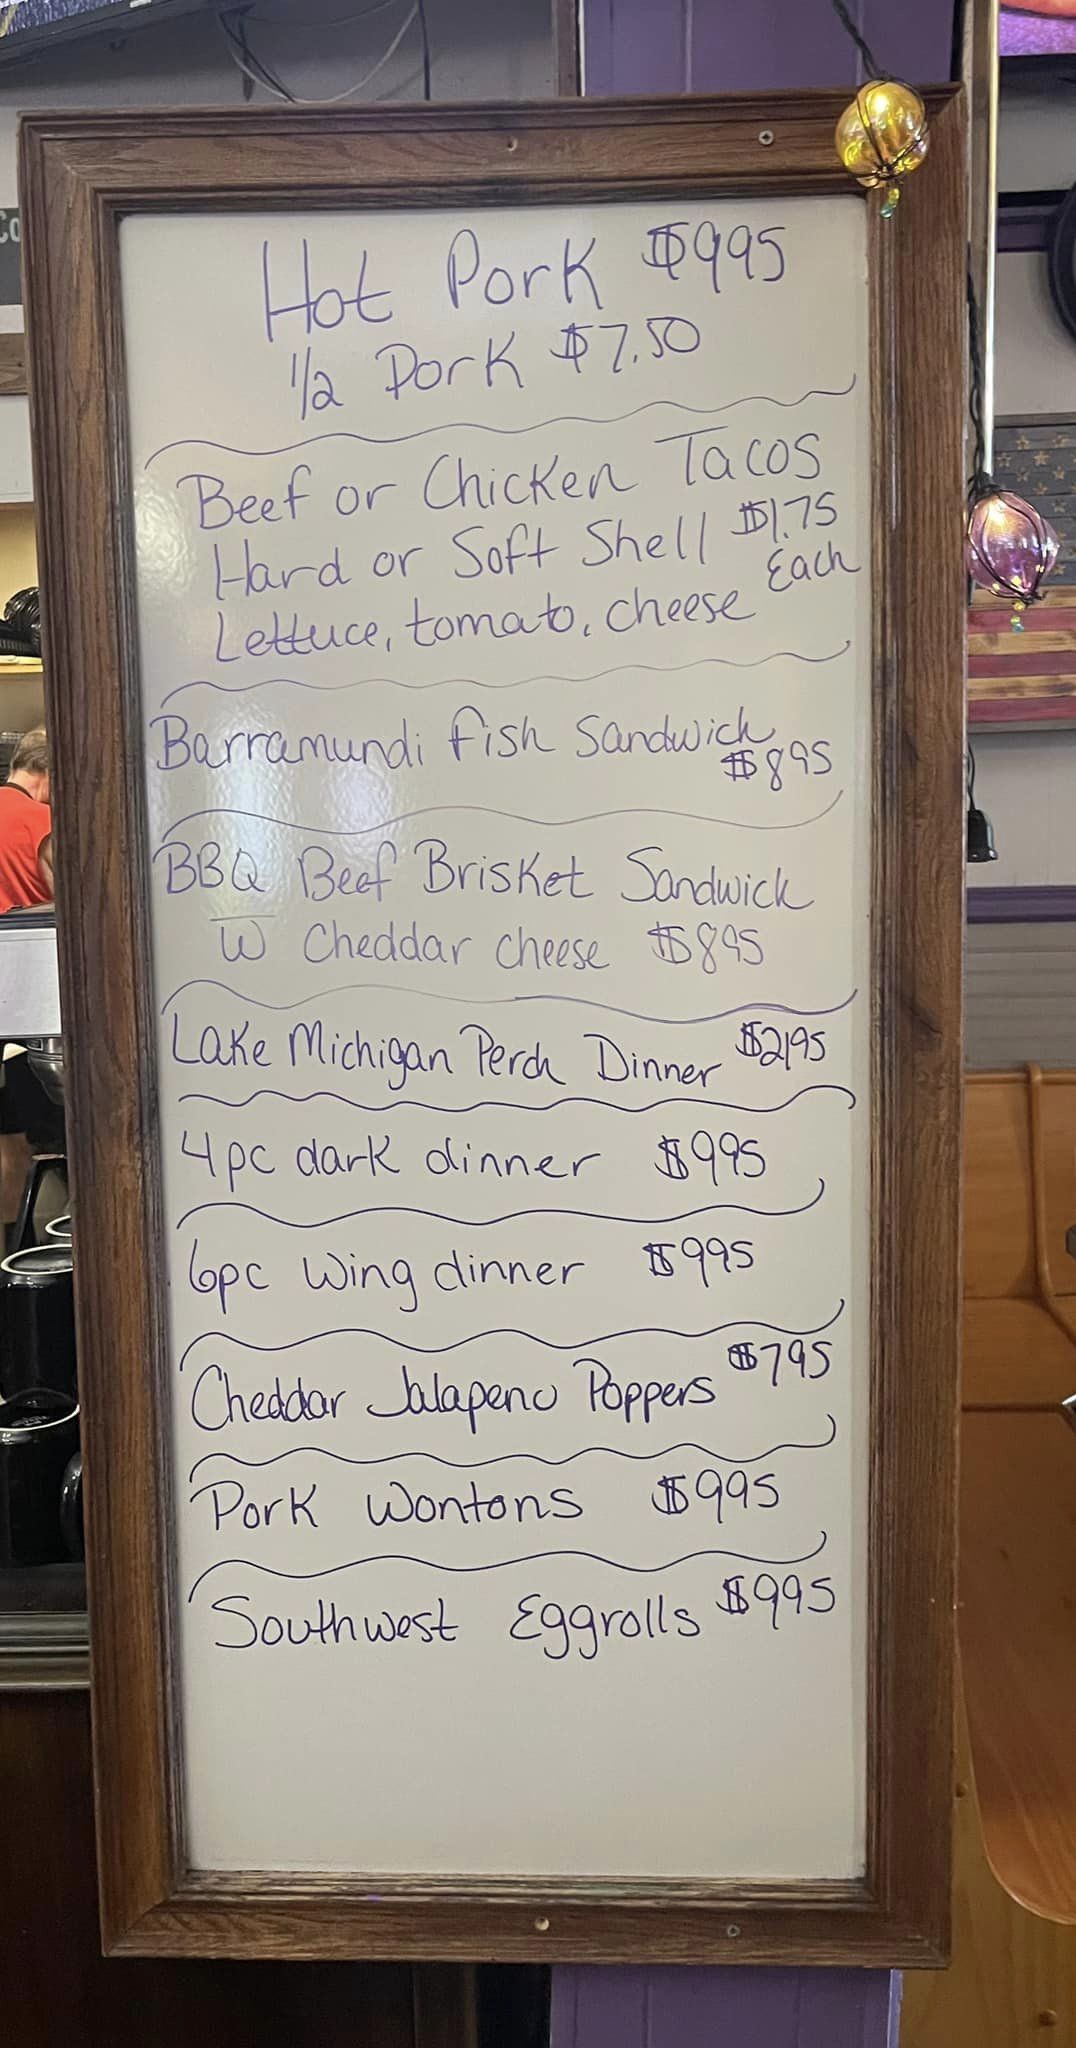 Co
Hot Pork $995
1/2 Pork $7.50
Beef or Chicken Tacos
Hard or Soft Shell $1.75
Each
Lettuce, tomato, cheese
Barramundi fish Sandwich
$895
BBQ Beef Brisket Sandwick
W Cheddar cheese $895
Lake Michigan Perch Dinner $2195
4pc dark dinner $995
6pc wing dinner $995
Cheddar Jalapeno Poppers $795
Pork Wontons $995
Southwest Eggrolls $995